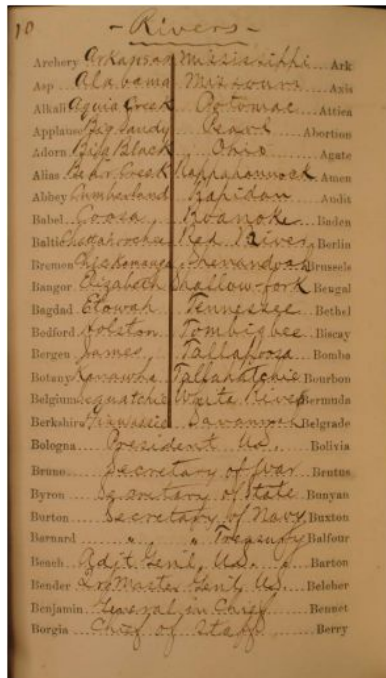 10 - Rivers -
Archery Arkansas Mississippi Ark
Asp Alabama Missouri Axis
Alkali Aquia Creek Potomac Attica
Applause Big Sandy Pearl Abortion
Adorn Big Black Ohio Agate
Alias Bear Creek Rappahannock Amen
Abbey Cumberland Rapidan Audit
Babel Coosa Roanoke Baden
Baltic Chattahoochee Red River Berlin
Bremen Chickamauga Shenandoah Brussels
Bangor Elizabeth Shallow-fork Bengal
Bagdad Etowah Tennessee Bethel
Bedford Holston Tombigbee Biscay
Bergen James Tallapoosa Bomba
Botany Kanawha Tallahatchie Bourbon
Belgium Sequatchie White River Bermuda
Berkshire Hiawassie Savannah Belgrade
Bologna President US. Bolivia
Bruno Secretary of War Brutus
Byron Secretary of State Bunyan
Burton Secretary of Navy Buxton
Barnard " " " Treasury Balfour
Bench Adjt Genl, US. Barton
Bender Qr Master Genl, US. Belcher
Benjamin General in Chief Bennet
Borgia Chief of Staff Berry